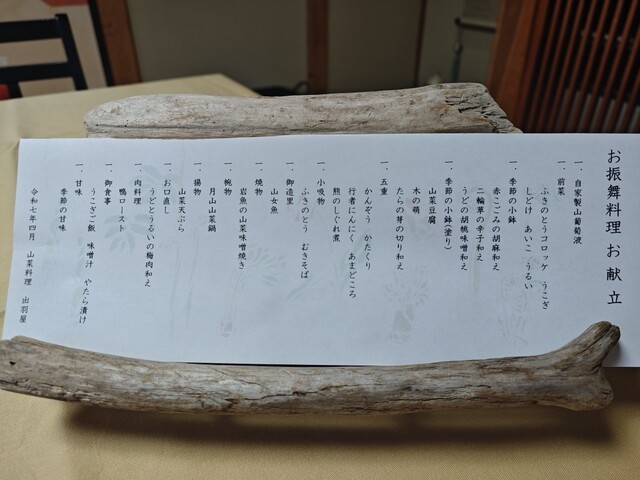 お振舞料理 お献立
一、自家製山葡萄液
一、前菜
ふきのとうコロッケ うこぎ
しどけ あいこ うるい
一、季節の小鉢
赤こごみの胡麻和え
二輪草の辛子和え
うどの胡桃味噌和え
一、季節の小鉢(塗り)
山菜豆腐
木の萌
たらの芽の切り和え
一、五重
かんぞう かたくり
行者にんにく あまどころ
熊のしぐれ煮
一、小吸物
ふきのとう むきそば
一、御造里
山女魚
一、焼物
岩魚の山菜味噌焼き
一、椀物
月山山菜鍋
一、揚物
山菜天ぷら
一、お口直し
うどとうるいの梅肉和え
一、肉料理
鴨ロースト
一、御食事
うこぎご飯 味噌汁 やたら漬け
一、甘味
季節の甘味
令和七年四月 山菜料理 出羽屋